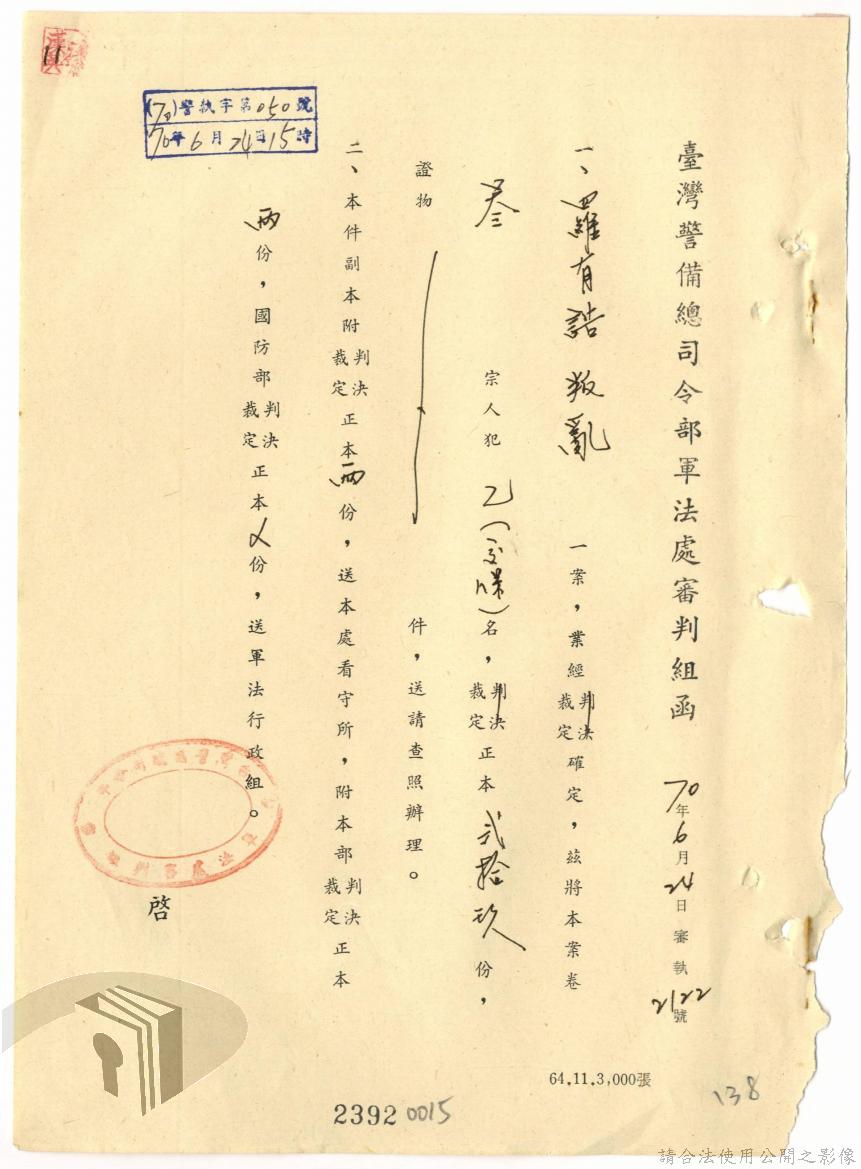 臺灣警備總司令部軍法處審判組函
70年6月24日審執2122號
一、羅有諾叛亂一案，業經判決裁定確定，茲將本案卷
叁宗人犯乙（交保）名，判決裁定正本貳拾玖份，
證物 件，送請查照辦理。
二、本件副本附判決裁定正本兩份，送本處看守所，附本部判決裁定正本
兩份，國防部判決裁定正本 份，送軍法行政組。
啓
(70)警執字第050號
70年6月24日15時
11
64.11.3,000張
2392 0015
138
請合法使用公開之影像